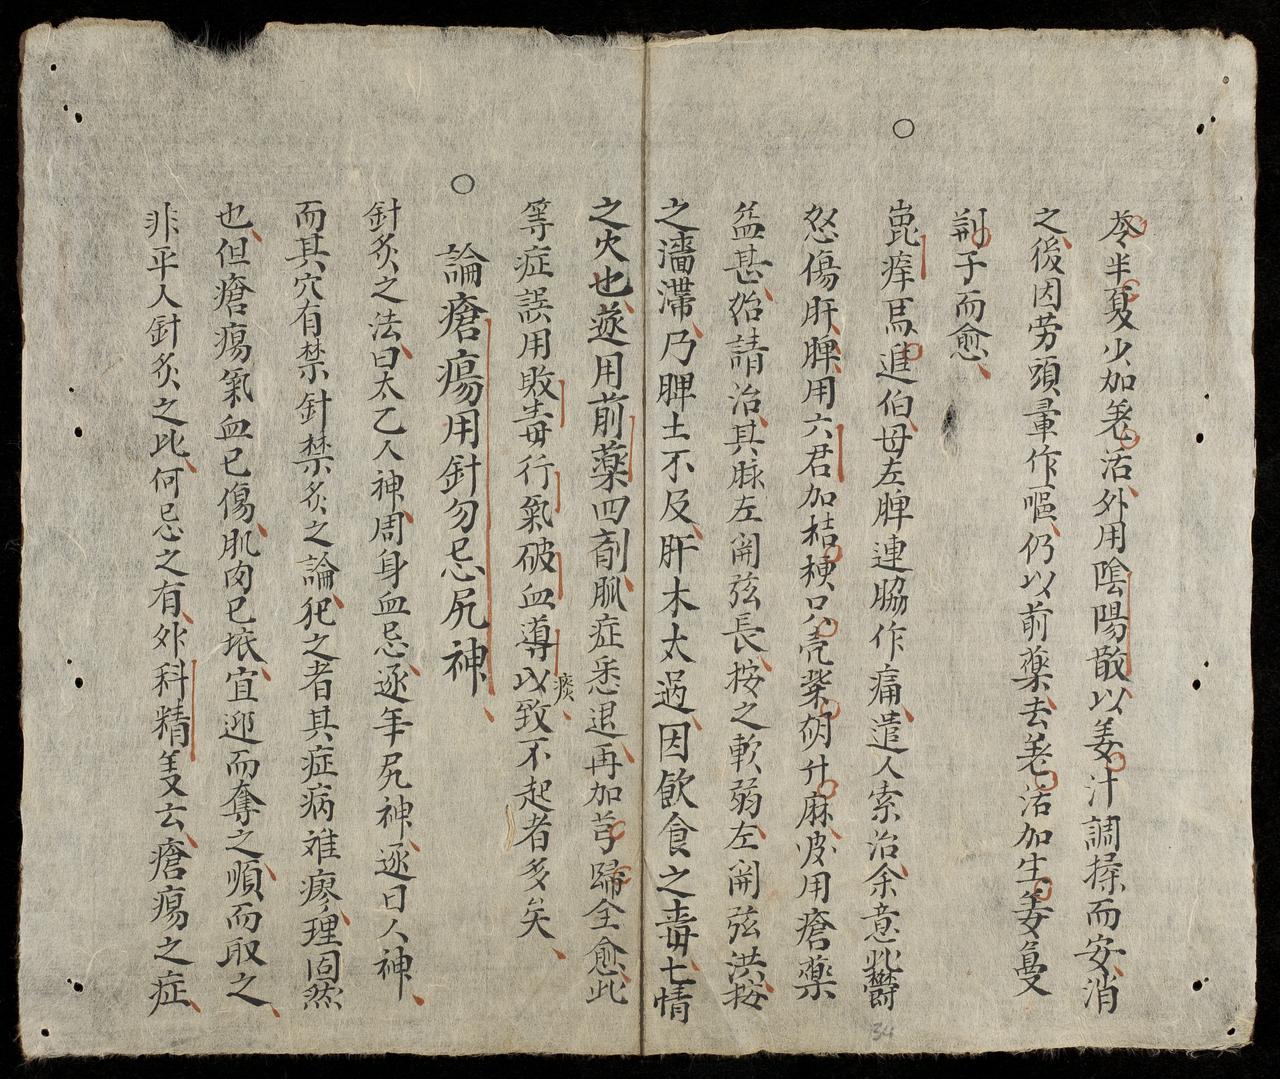 苓半夏少加羗活外用陰陽散以姜汁調搽而安消
之後因劳頭暈作嘔仍以前藥去羗活加生姜蔓
荆子而愈
○崑痒馬進伯母左脾連脇作痛遣人索治余意此鬱
怒傷肝脾用六君加桔梗只壳柴胡升麻彼用瘡藥
益甚始請治其脉左関弦長按之軟弱左関弦洪按
之濇滯乃脾土不及肝木太過因飲食之毒七情
之火也遂用前藥四劑脈症悉退再加芎歸全愈此
等症誤用敗毒行氣破血導痰以致不起者多矣
○論瘡瘍用針勿忌尻神
針灸之法曰太乙人神周身血忌逐年尻神逐日人神
而其穴有禁針禁灸之論犯之者其症病难瘳理固然
也但瘡瘍氣血已傷肌肉已壊宜迎而奪之順而取之
非平人針灸之比何忌之有外科精義云瘡瘍之症
34